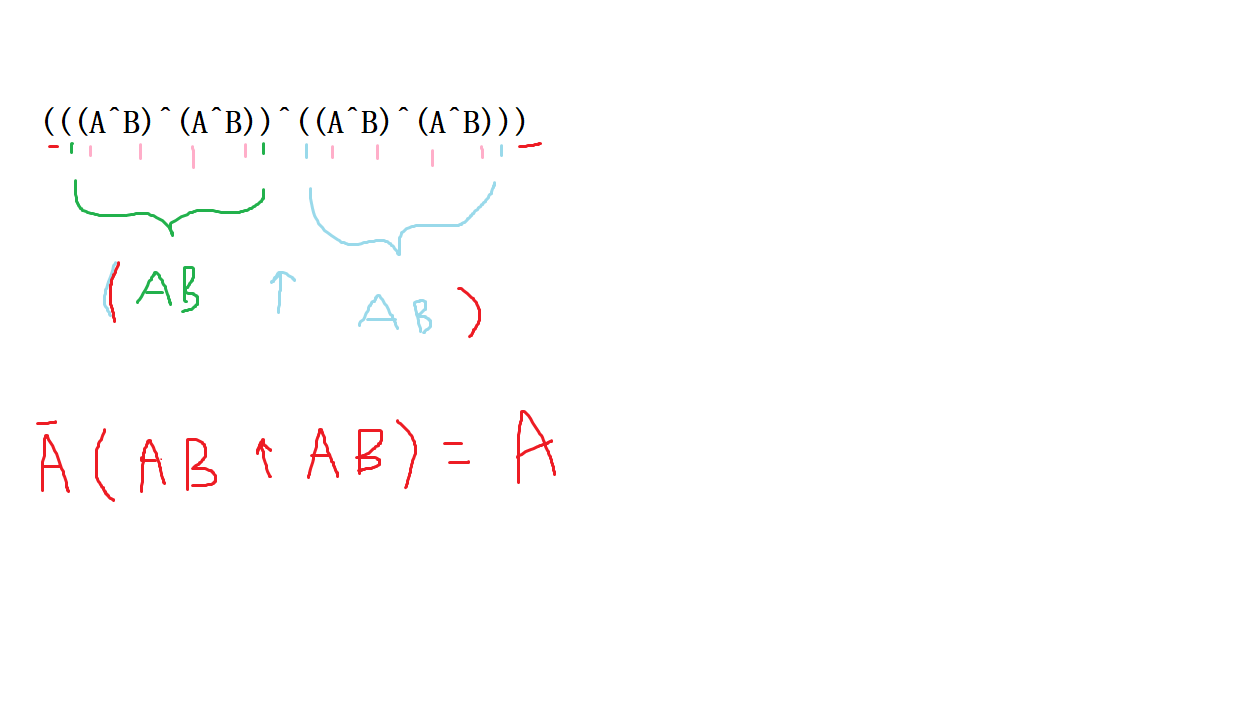 (((A^B)^(A^B))^((A^B)^(A^B)))
(AB ↑ AB)
Ā(AB ↑ AB) = A